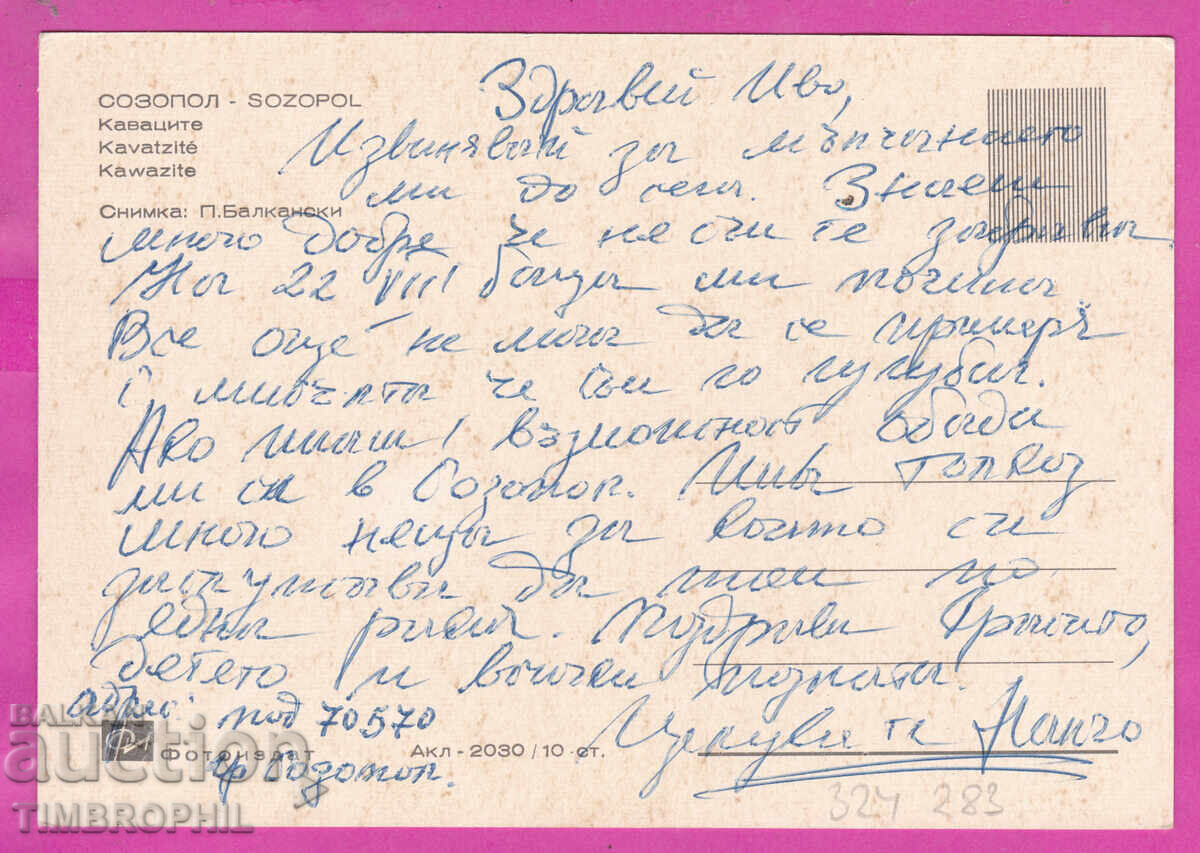 СОЗОПОЛ - SOZOPOL
Каваците
Kavatzité
Kawazite
Снимка: П.Балкански
Здравей Иво,
Извинявай за мълчанието
ми до сега. Знаеш
много добре че не съм те забравил
На 22 VIII баща ми почина
Все още не мога да се примеря
с мисълта че съм го изгубил.
Ако имаш възможност обади
ми се в Созопол. Има толкоз
много неща за които си
заслужава да пием по
една ракия. Поздрави
детето и всички познати.
адрес: под 70570
гр Созопол.
Целува те Манчо
Фотоиздат
Акл - 2030 / 10 ст.
324 283
BALKAN
auction
TIMBROPHIL